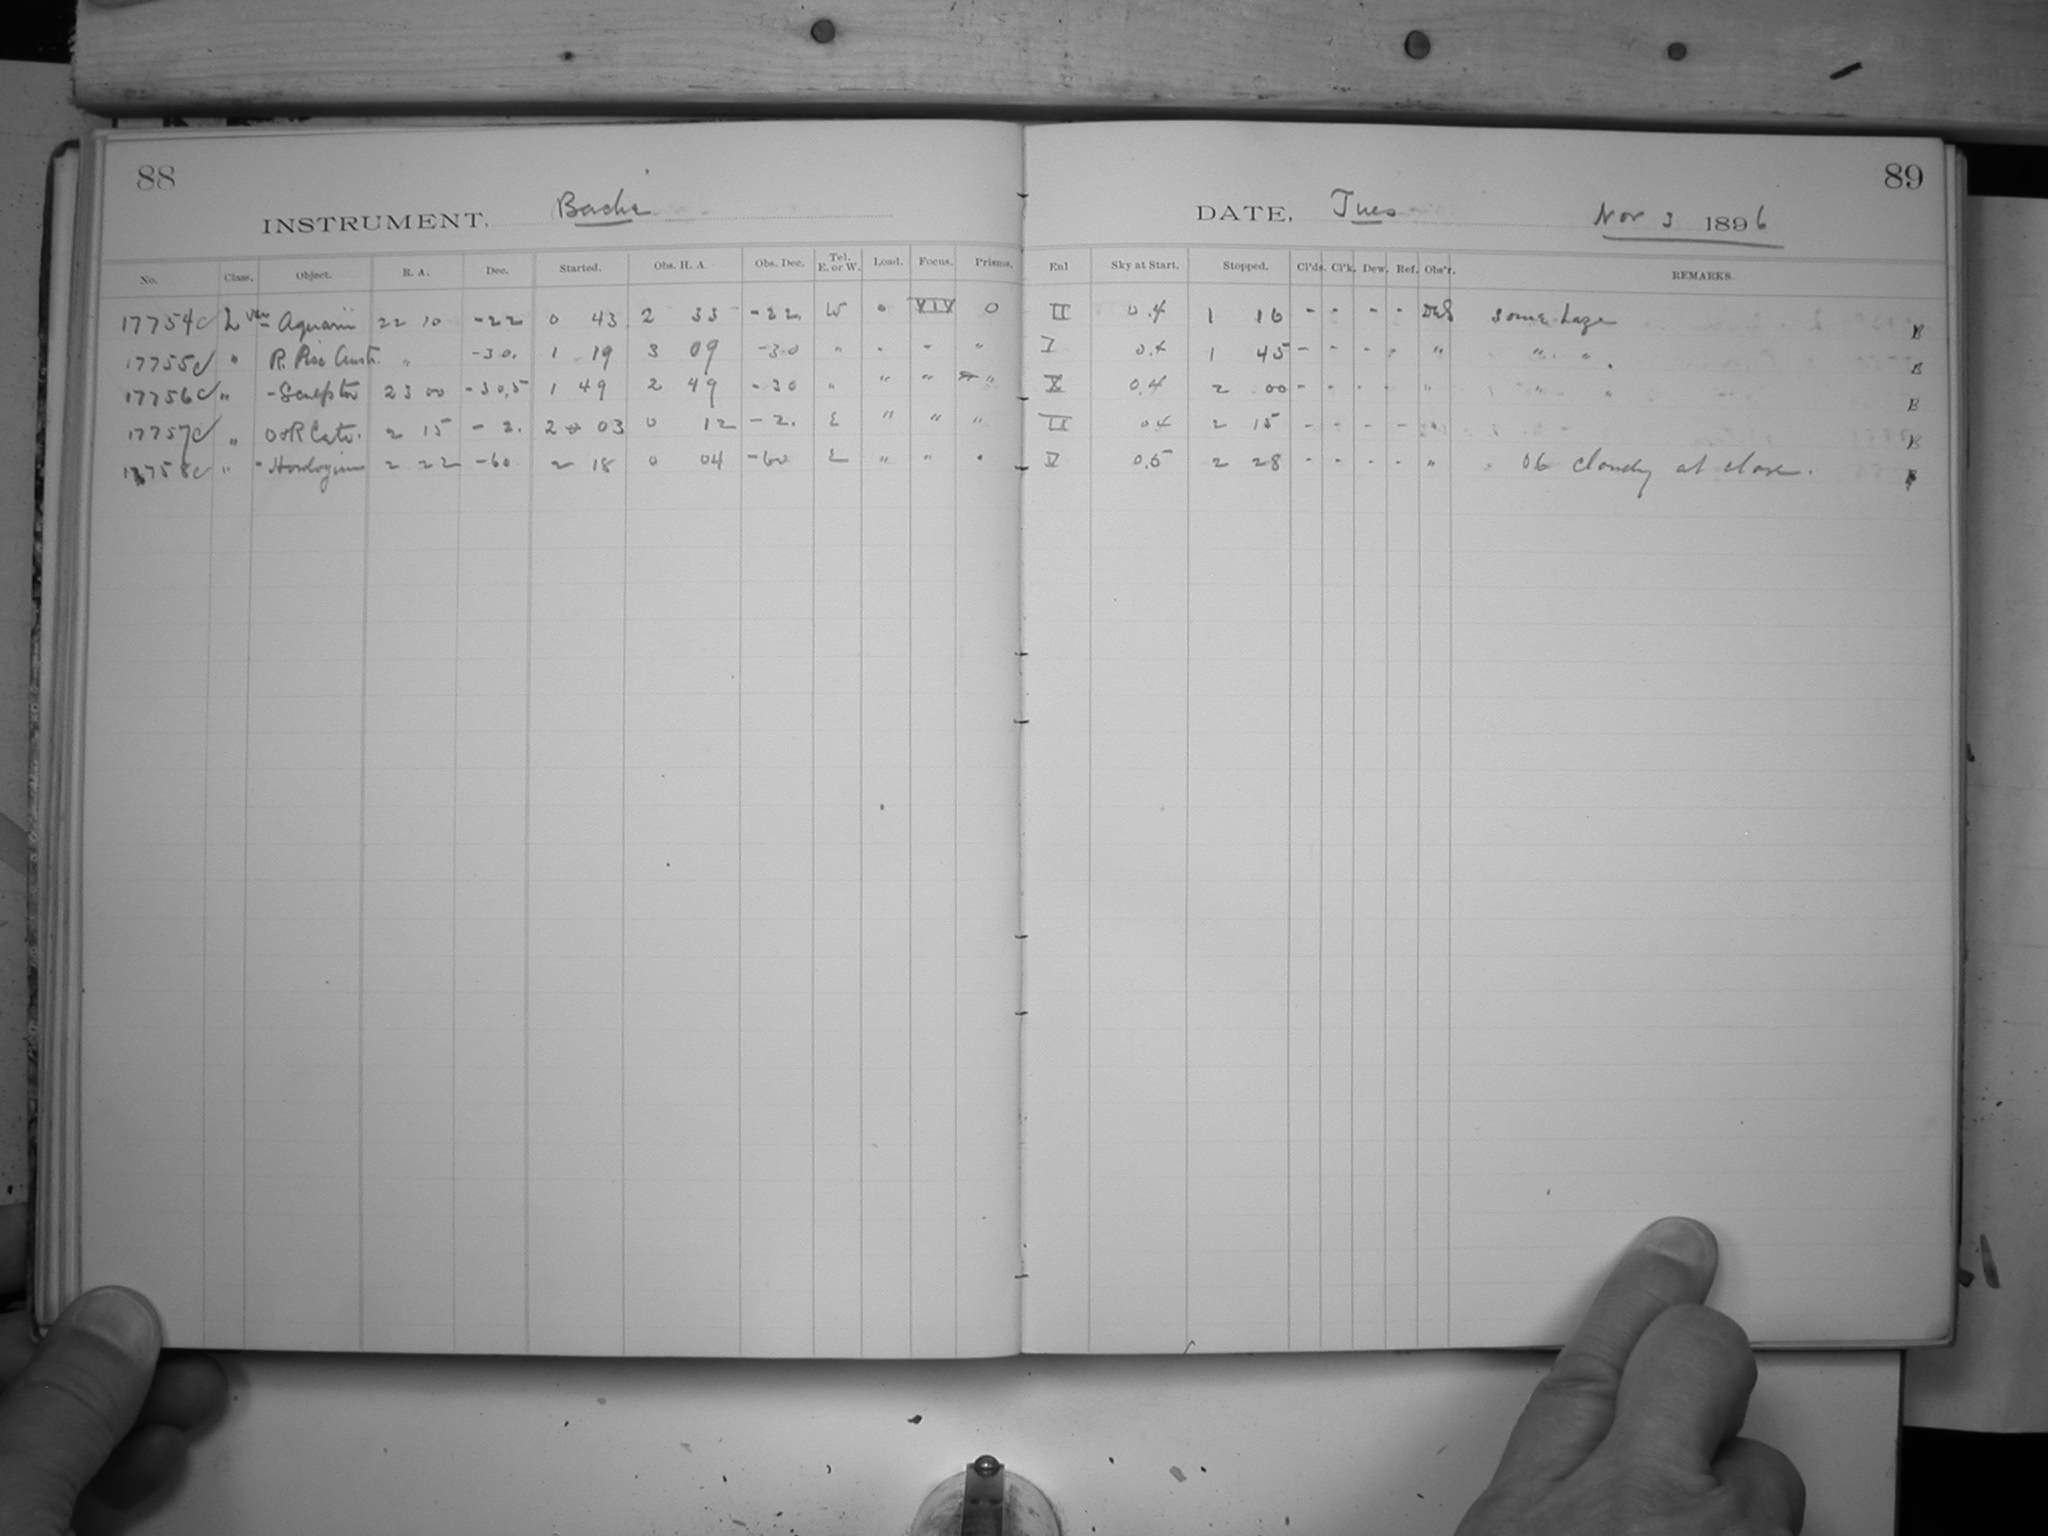 88
INSTRUMENT. Bache
No. Class. Object. R. A. Dec. Started. Obs. H. A. Obs. Dec. Tel. E. or W. Load. Focus. Prisms.
17754 L Var - Aquarii 22 10 -22 0 43 2 33 -22. W 0 XIV 0
17755 " R. Pisc Austr. " -30. 1 19 3 09 -30 " " " "
17756 " - Sculptor 23 00 -30.5 1 49 2 49 -30 " " " "
17757 " o & R Ceti. 2 15 - 2. 2 03 0 12 - 2. E " " "
17758 " - Horologium 2 22 -60 2 18 0 04 -60 E " " "
89
DATE, Tues Nov 3 1896
Enl Sky at Start. Stopped. Cl'ds. Cl'k. Dew. Ref. Obs'r. REMARKS.
II 0.4 1 16 - - - - some haze B
I 0.4 1 45 - - - - " " " B
X 0.4 2 00 - - - - " " " B
II 04 2 15 - - - - " B
V 0.5 2 28 - - - - " 06 cloudy at close. B